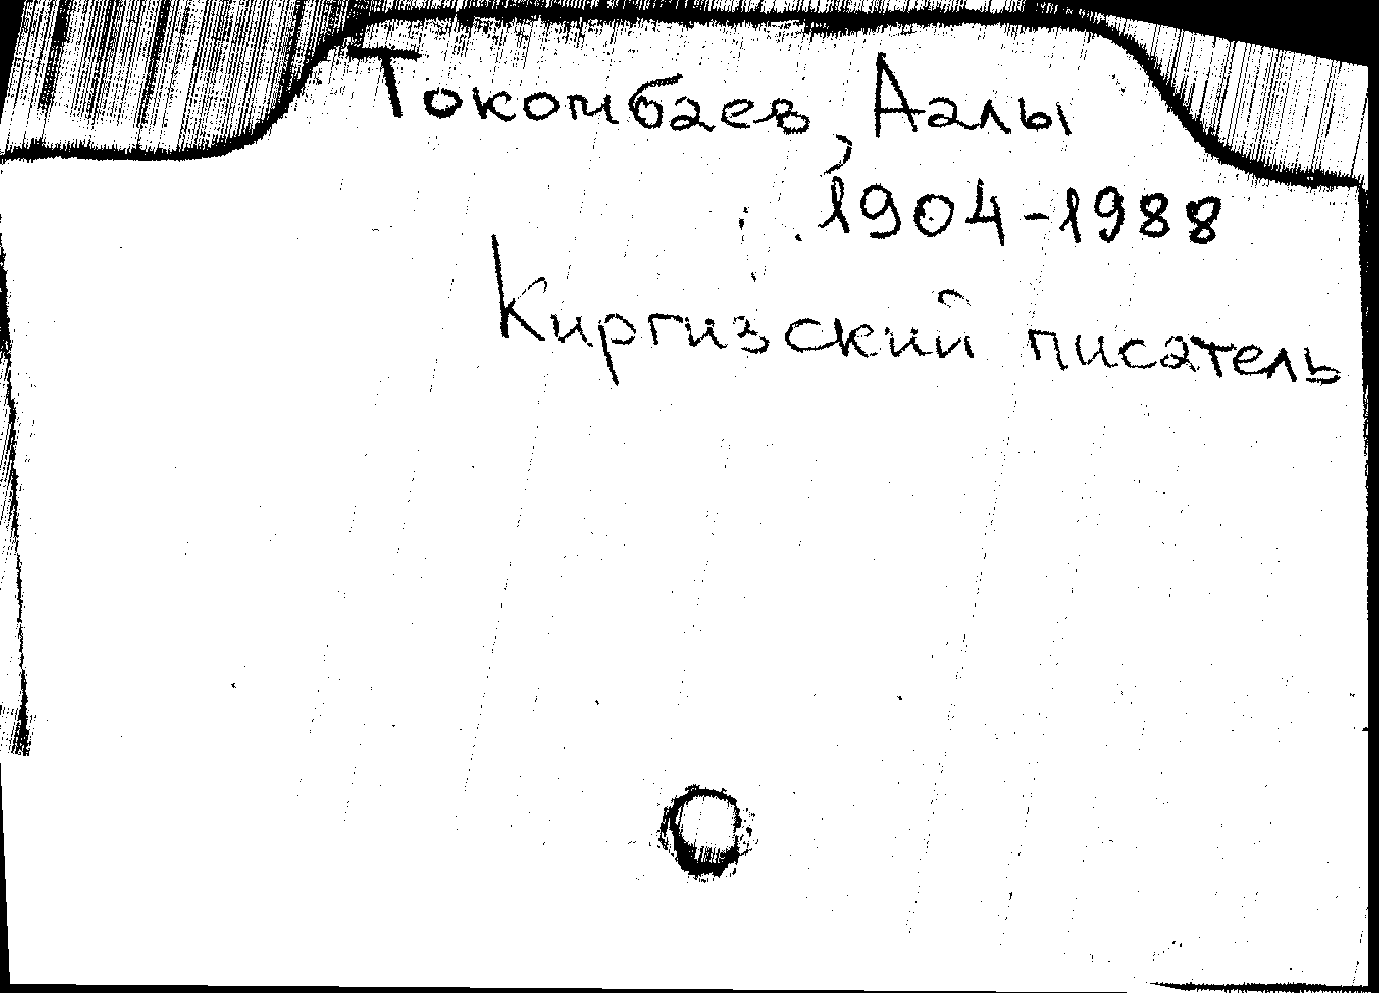 Токомбаев, Аалы
1904-1988
Киргизский писатель